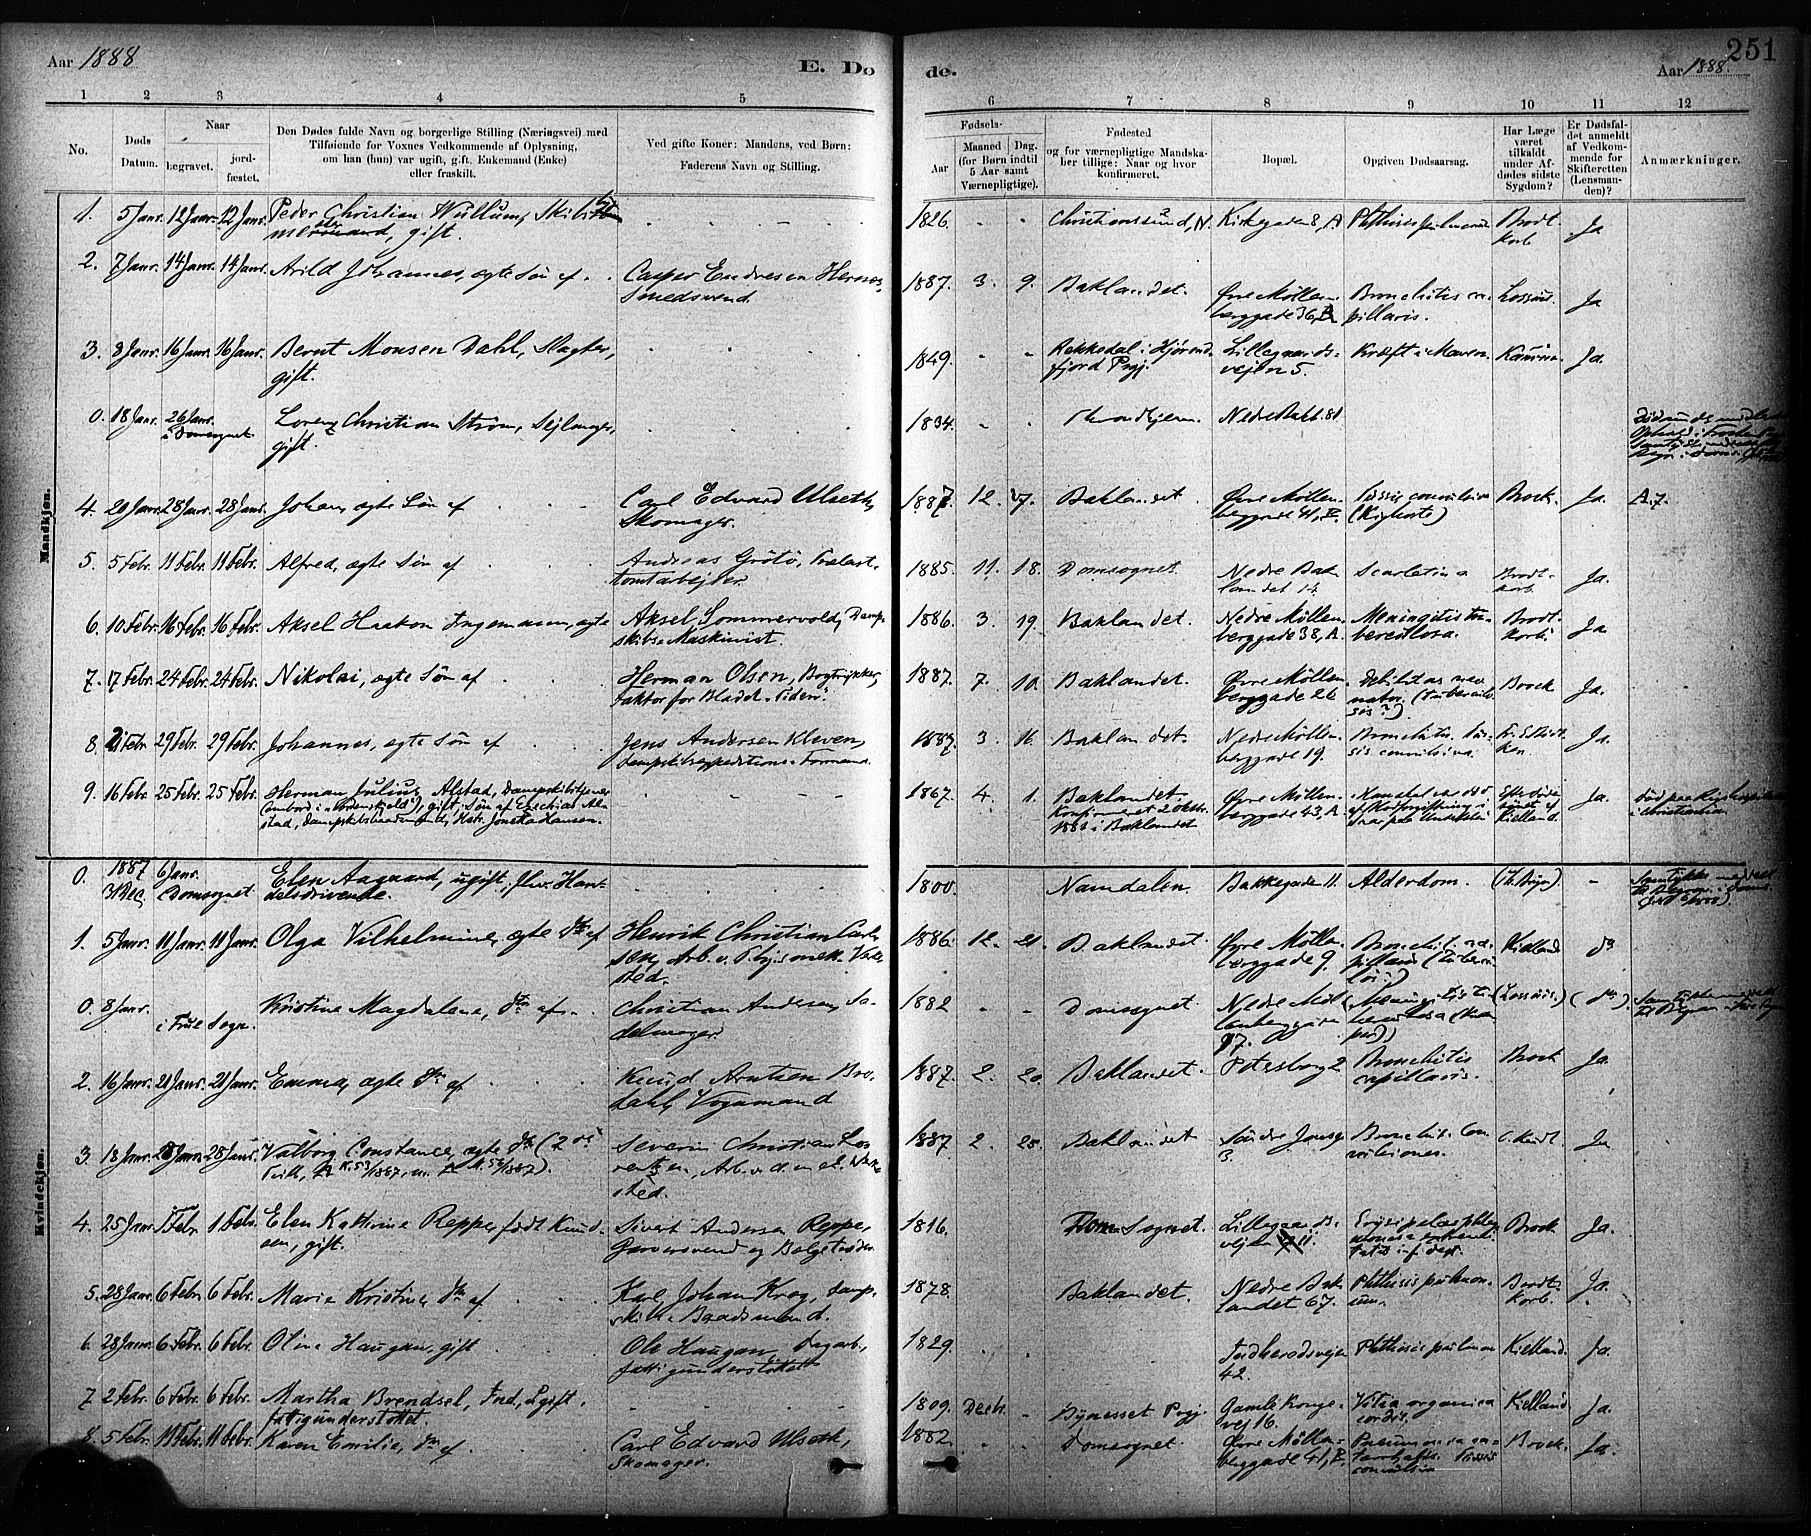 Aar 1888
E. Dø
de.
Aar 1888.
251
1 2 3 4 5 6 7 8 9 10 11 12
No.
Døds Datum.
Naar
begravet.
jordfæstet.
Den Dødes fulde Navn og borgerlige Stilling (Næringsvei) med
Tilføiende for Voxnes Vedkommende af Oplysning,
om han (hun) var ugift, gift. Enkemand (Enke)
eller fraskilt.
Ved gifte Koner: Mandens, ved Børn:
Faderens Navn og Stilling.
Fødsels-
Aar
Maaned (for Børn indtil 5 Aar samt Værnepligtige).
Dag.
Fødested
og for værnepligtige Mandskaber tillige: Naar og hvor
konfirmeret.
Bopæl.
Opgiven Dødsaarsag.
Har Læge været tilkaldt under Afdødes sidste Sygdom?
Er Dødsfaldet anmeldt af Vedkommende for Skifteretten (Lensmanden)?
Anmærkninger.
Mandkjøn.
1. 5 Janr. 12 Janr. 12 Janr. Peder Christian Wullum, gift. 1826. Christianssund, N. Kirkegaden 8, A Phthisis pulmonum Brodtkorb Ja
2. 7 Janr. 14 Janr. 14 Janr. Arild Johannes, ægte Søn af Casper Endresen
Smedsvend. 1887. 3. 9. Baklandet. Øvre Møllenberggade 36, Bronchitis capillaris. Lossius. Ja
3. 8 Janr. 16 Janr. 16 Janr. Bernt Monsen Dahl, Slagter,
gift. 1849. Rekkedal i Hjørendfjord Prgj. Lillegaardsvejen 5. Kræft i Maven. Ja.
0. 18 Janr. 26 Janr. i Domsognet Lorenz Christian Strøm, Sejlmager,
gift. 1834. Throndhjem. Nedre Bakl. 81
4. 20 Janr. 28 Janr. 28 Janr. Johan, ægte Søn af Carl Edvard Ulseth,
Skomager. 1887. 12. 7. Baklandet Øvre Møllenberggade 41, Tussis convulsiva (Kighoste) Brock. Ja. A.7.
5. 5 Febr. 11 Febr. 11 Febr. Alfred, ægte Søn af Andreas Grøtø,
tomtarbejder. 1885. 11. 18. Domsognet. Nedre Baklandet 14. Scarlatina Brodtkorb. Ja.
6. 10 Febr. 16 Febr. 16 Febr. Aksel Haakon Ingemann, ægte Aksel Sommervold, Dampskibs-Maskinist. 1886. 3. 19. Baklandet. Nedre Møllenberggade 38, A. Meningitis tuberculosa. Brodtkorb. Ja
7. 17 Febr. 24 Febr. 24 Febr. Nikolai, ægte Søn af Herman Olsen, Bogtrykker,
Faktor for Bladet 1887. 7. 10. Baklandet. Øvre Møllenberggade 26 Brock Ja.
8. 21 Febr. 29 Febr. 29 Febr. Johannes, ægte Søn af Jens Andersen Kleven,
Dampskibsexpeditions-Formand. 1887. 3. 16. Baklandet. Nedre Møllenberggade 19. Bronchitis. Tussis convulsiva. Ja.
9. 16 Febr. 25 Febr. 25 Febr. Herman Julius Alstad, gift, Søn af Ezechias Alstad, 1867. 4. 1. Baklandet.
Konfirmeret i Baklandet Øvre Møllenberggade 43, A. Kielland. Ja. Død paa Rigshospitalet
i Christiania
Kvindekjøn.
0. 1887 31 Dec. 6 Janr. Domsognet Elen Aagaard, ugift, Handelsdrivende. 1800. Namdalen. Bakkegaden 11. Alderdom. -
1. 5 Janr. 11 Janr. 11 Janr. Olga Vilhelmine, ægte Dtr af Henrik Christian Carlsen, Arb. v. Thrj. mek. Værksted. 1886. 12. 21. Baklandet. Øvre Møllenberggade 9. Kielland do
0. 8 Janr. i Frue Sogn. Kristine Magdalene, Dtr af Christian Andersen, Sadelmager. 1882 Domsognet Nedre Møllenberggade 97. (Lossius.)
2. 16 Janr. 21 Janr. 21 Janr. Emma, ægte Dtr af Knud Arntsen Brodahl, Vognmand 1887. 2. 20. Baklandet. Petersborg 2 Bronchitis capillaris. Brock Ja.
3. 18 Janr. 28 Janr. 28 Janr. Valborg Constance, ægte Dtr Severin Christian Lorentzen, Arb. v. d. mek. Værksted. 1887 2. 25. Baklandet Ja
4. 25 Janr. 1 Febr. 1 Febr. Elen Kathrine Reppe, født Knudsen, gift. Sivert Andersen Reppe,
Garversvend og 1816. Dom Sognet. Lillegaardsvejen 11. Brock Ja.
5. 28 Janr. 6 Febr. 6 Febr. Marie Kristine, Dtr af Karl Johan Krog, Dampskibs-Baadsmand. 1878. Baklandet. Nedre Baklandet 67. Phthisis pulmonum. Brodtkorb. Ja.
6. 28 Janr. 6 Febr. 6 Febr. Oline Haugan, gift Ole Haugan, Dagarb.,
fattigunderstøttet 1829. Indherredsvejen 42. Phthisis pulmon Kielland. Ja.
7 2 Febr. 6 Febr. 6 Febr. Martha Brendsel, Ind., ugift.
fattigunderstøttet. 1809. Decb. Bynesset Prgj. Gamle Kongevej 16. Vitia organica cordis. Kielland Ja.
8. 5 Febr. 11 Febr. 11 Febr. Karen Emilie, Dtr af Carl Edvard Ulseth,
Skomager. 1882. Domsognet Øvre Møllenberggade 41, Brock. Ja.